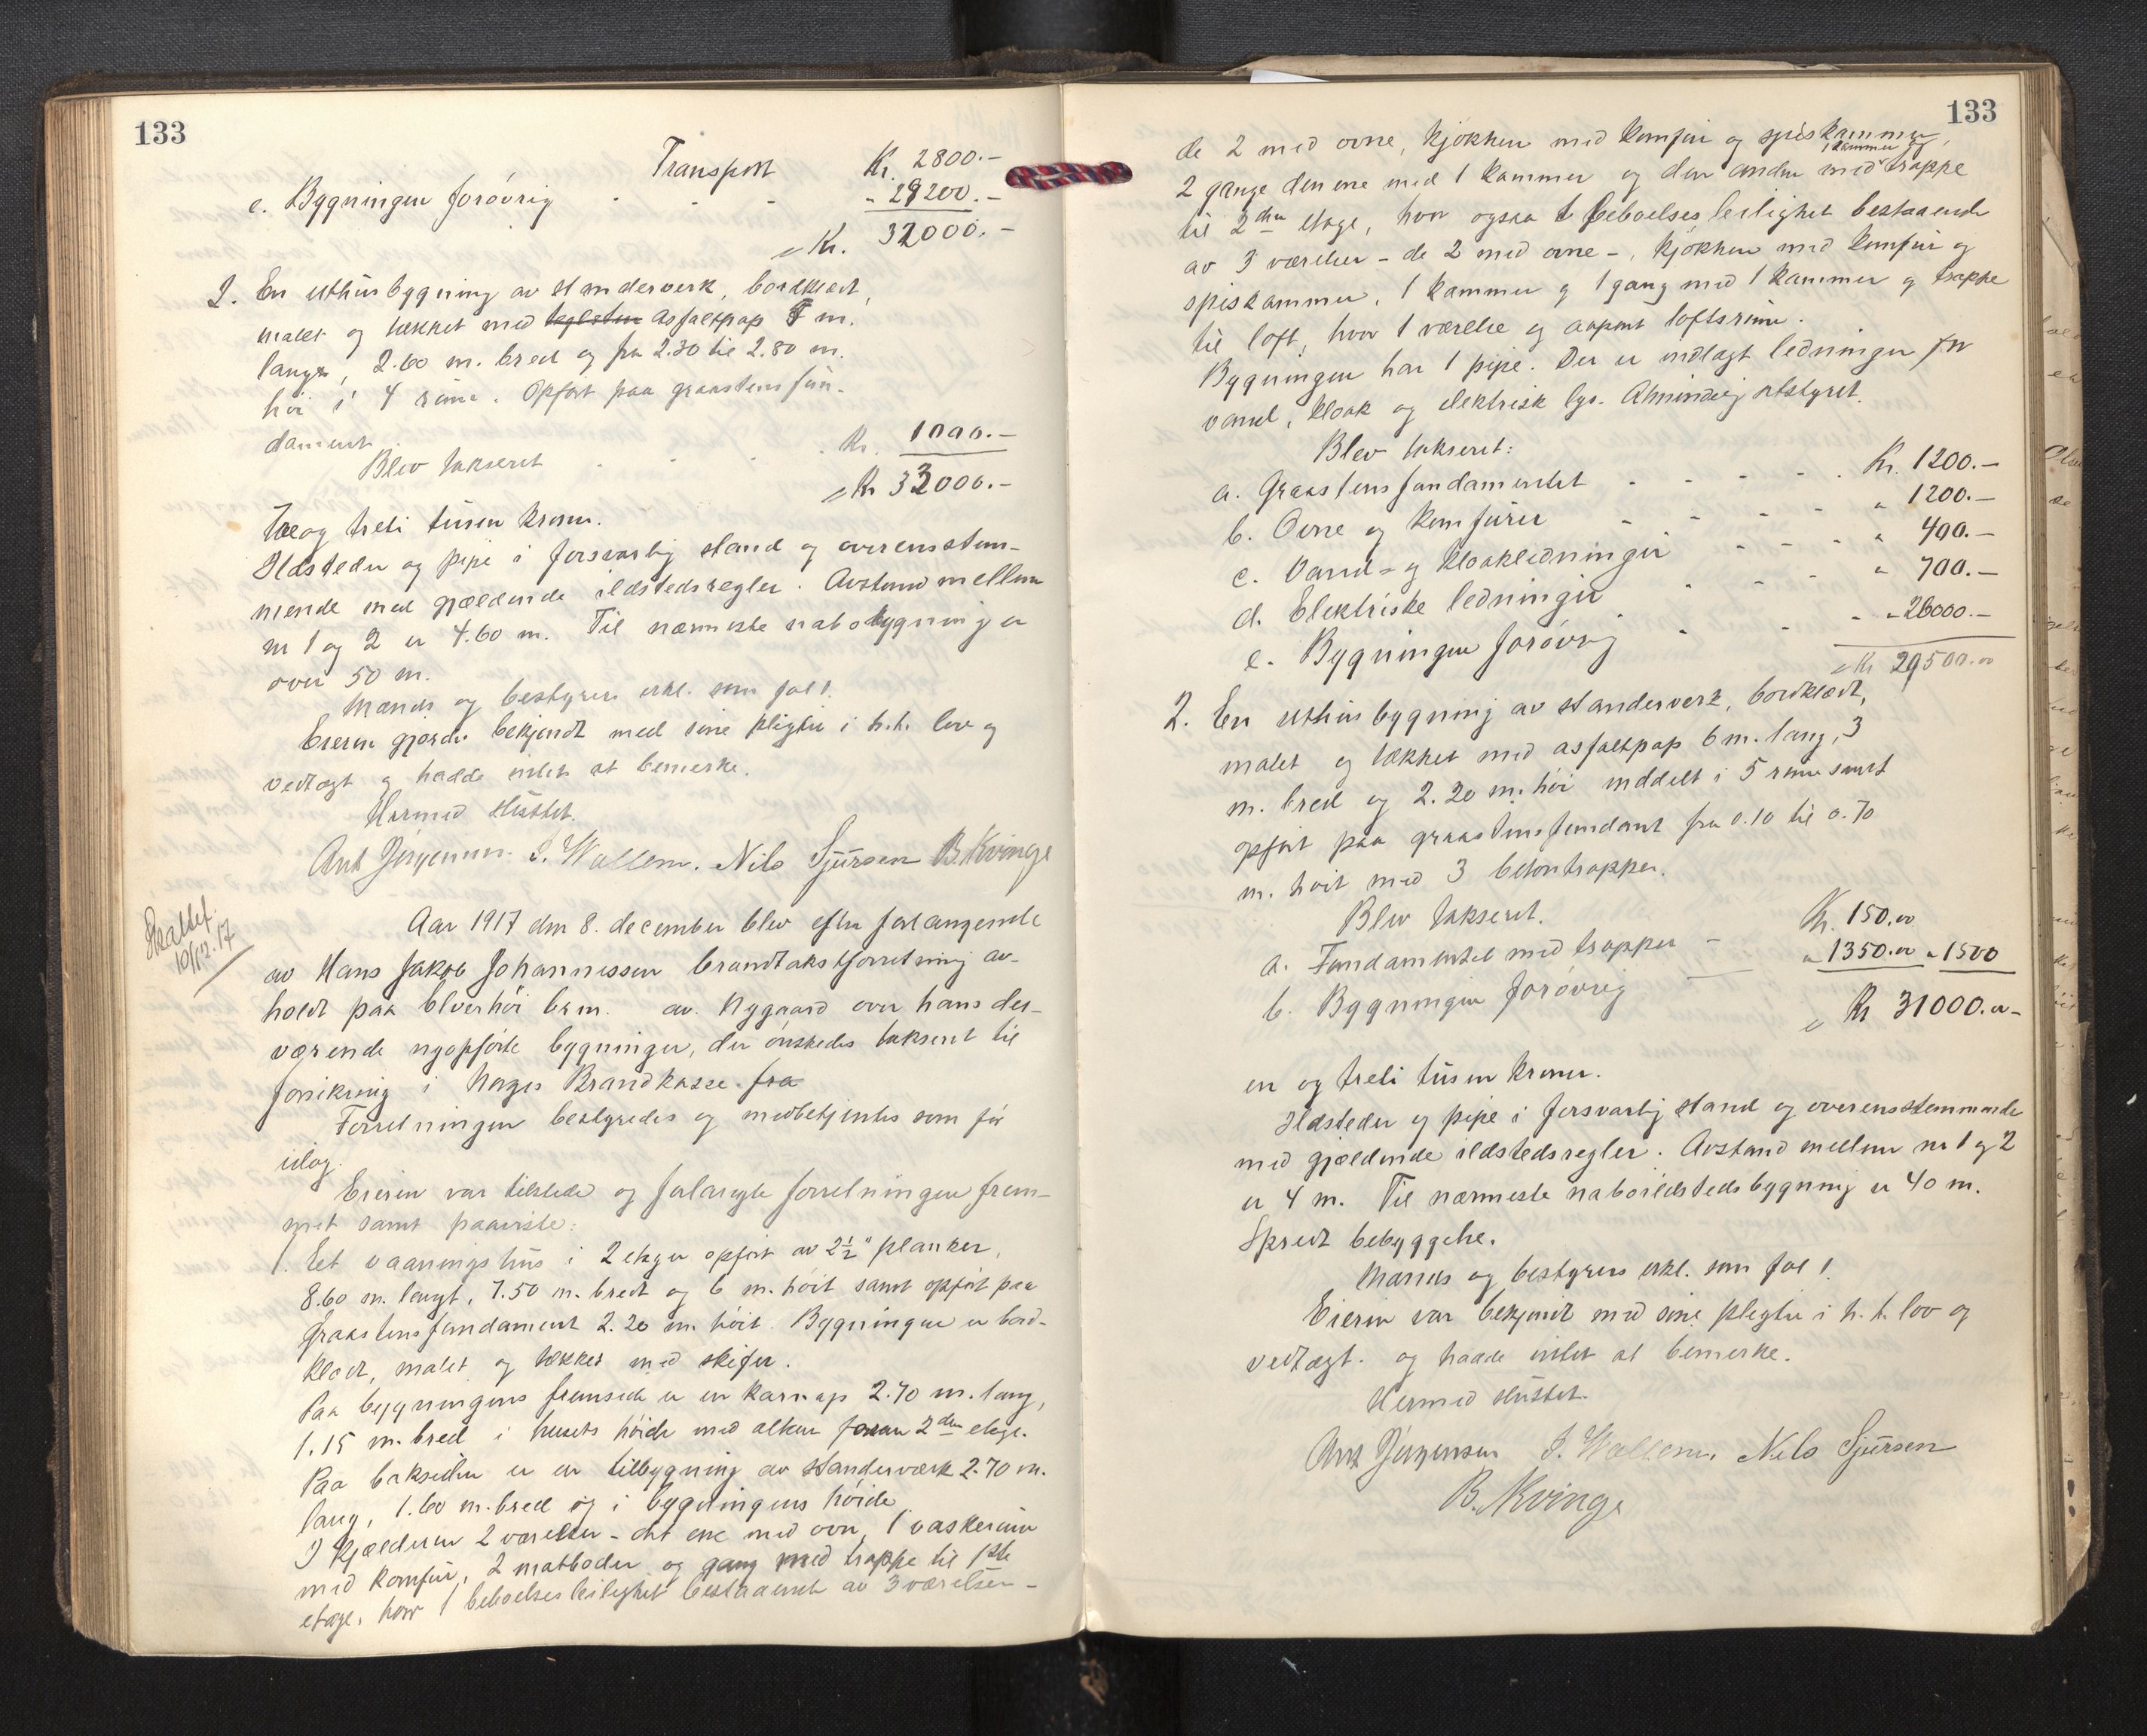 133
Transport Kr. 2800.-
e. Bygningen forøvrig - - - " 29200.-
Kr. 32000.-
2. En uthusbygning av standerverk, bordklædt,
malet og tækket med teglsten asfaltpap 5 m.
lang, 2.60 m. bred og fra 2.30 til 2.80 m.
høi i 4 rum. Opført paa graastensfun-
dament.
Blev takseret - - - Kr. 1000.-
Kr 33000.-
Tre og treti tusen kroner.
Ildsteder og pipe i forsvarlig stand og overensstem-
mende med gjældende ildstedsregler. Avstand mellem
nr 1 og 2 er 4.60 m. Til nærmeste nabobygning er
over 50 m.
Mænds og bestyrers erkl. som fol 1.
Eieren gjordes bekjendt med sine pligter i h.t. lov og
vedtægt og hadde intet at bemerke.
Hermed sluttet.
Ant Jørgensen. I. Wallem. Nils Sjursen B. Kvinge
10/12.17
Aar 1917 den 8. december blev efter forlangende
av Hans Jakob Johannessen brandtakstforretning av-
holdt paa Elverhøi br.nr. av Nygaard over hans der-
værende nyopførte bygninger, der ønskedes takseret til
forsikring i Norges Brandkasse. fra
Forretningen bestyredes og medbetjentes som før
idag.
Eieren var tilstede og forlangte forretningen frem-
met samt paaviste:
1. Et vaaningshus i 2 etager opført av 2½" planker,
8.60 m. langt, 7.50 m. bredt og 6 m. høit samt opført paa
Graastensfundament 2.20 m. høit. Bygningen er bord-
klædt, malet og tækket med skifer.
Paa bygningens fremside er en karnap 2.70 m. lang,
1.15 m. bred i husets høide med altan foran 2den etage.
Paa baksiden er en tilbygning av standerværk 2.70 m.
lang, 1.60 m. bred og i bygningens høide.
I kjælderen 2 værelser - det ene med ovn, 1 vaskerum
med komfur, 2 matboder og gang med trappe til 1ste
etage, hvor 1 beboelsesleilighet bestaaende av 3 værelser -
133
de 2 med ovne, kjøkken med komfur og spiskammer,
1 kammer og
2 gange den ene med 1 kammer og den anden med trappe
til 2den etage, hvor ogsaa 1 beboelsesleilighet bestaaende
av 3 værelser - de 2 med ovne -, kjøkken med komfur og
spiskammer, 1 kammer og 1 gang med 1 kammer og trappe
til loft, hvor 1 værelse og aapent loftsrum.
Bygningen har 1 pipe. Der er indlagt ledninger for
vand, kloak og elektrisk lys. Almindelig utstyret.
Blev takseret:
a. Graastensfundamentet - - - Kr. 1200.-
b. Ovne og komfurer - - - " 1200.-
c. Vand- og kloakledninger - - - " 400.-
d. Elektriske ledninger - - - " 700.-
e. Bygningen forøvrig - - - " 26000.-
Kr 29500.00
2. En uthusbygning av standerverk, bordklædt,
malet og tækket med asfaltpap 6 m. lang, 3
m. bred og 2.20 m. høi inddelt i 5 rum samt
opført paa graastensfundamt fra 0.10 til 0.70
m. høit med 3 betontrapper.
Blev takseret.
a. Fundamentet med trapper - Kr. 150.00
b. Bygningen forøvrig - " 1350.00 " 1500
Kr 31000.00-
en og treti tusen kroner.
Ildsteder og pipe i forsvarlig stand og overensstemmende
med gjældende ildstedsregler. Avstand mellem nr 1 og 2
er 4 m. Til nærmeste naboildstedsbygning er 40 m.
Spredt bebyggelse.
Mænds og bestyrers erkl. som fol 1.
Eieren var bekjendt med sine pligter i h.t. lov og
vedtægt. og hadde intet at bemerke.
Hermed sluttet.
Ant Jørgensen I. Wallem. Nils Sjursen
B. Kvinge